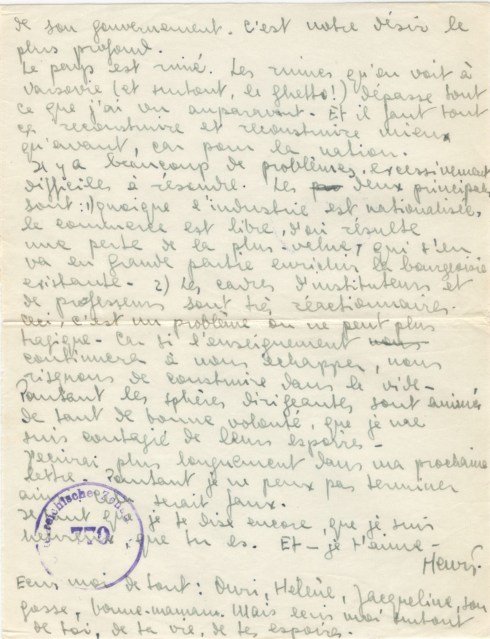 de son gouvernement. C'est notre désir le
plus profond.
Le pays est ruiné. Les ruines qu'on voit à
Varsovie (et surtout, le ghetto!) dépasse tout
ce que j'ai vu auparavant. Et il faut tout
ça reconstruire et reconstruire mieux
qu'avant, car pour la nation.
Il y a beaucoup de problèmes, excessivement
difficiles à résoudre. Les deux principales
sont: 1) quoique l'industrie est nationalisée,
le commerce est libre, d'où résulte
une perte de la plus-value, qui s'en
va en grande partie enrichir la bourgeoisie
existante. 2) Les cadres d'instituteurs et
de professeurs sont très réactionnaires.
Ceci, c'est un problème on ne peut plus
tragique. Car si l'enseignement
continuera à nous échapper, nous
risquons de construire dans le vide.
Pourtant les sphères dirigeantes sont animés
de tant de bonne volonté, que je me
suis contagié de leurs espoires.
J'ecrirai plus longuement dans ma prochaine
lettre. Pourtant je ne peux pas terminer
serait faux.
que je te dise encore, que je suis
que tu es. Et - je t'aime -
Henri.
Ecris moi de tout: Ouri, Helène, Jacqueline, son
gosse, bonne-maman. Mais ecris moi surtout
de toi, de ta vie, de tes espoires.
779